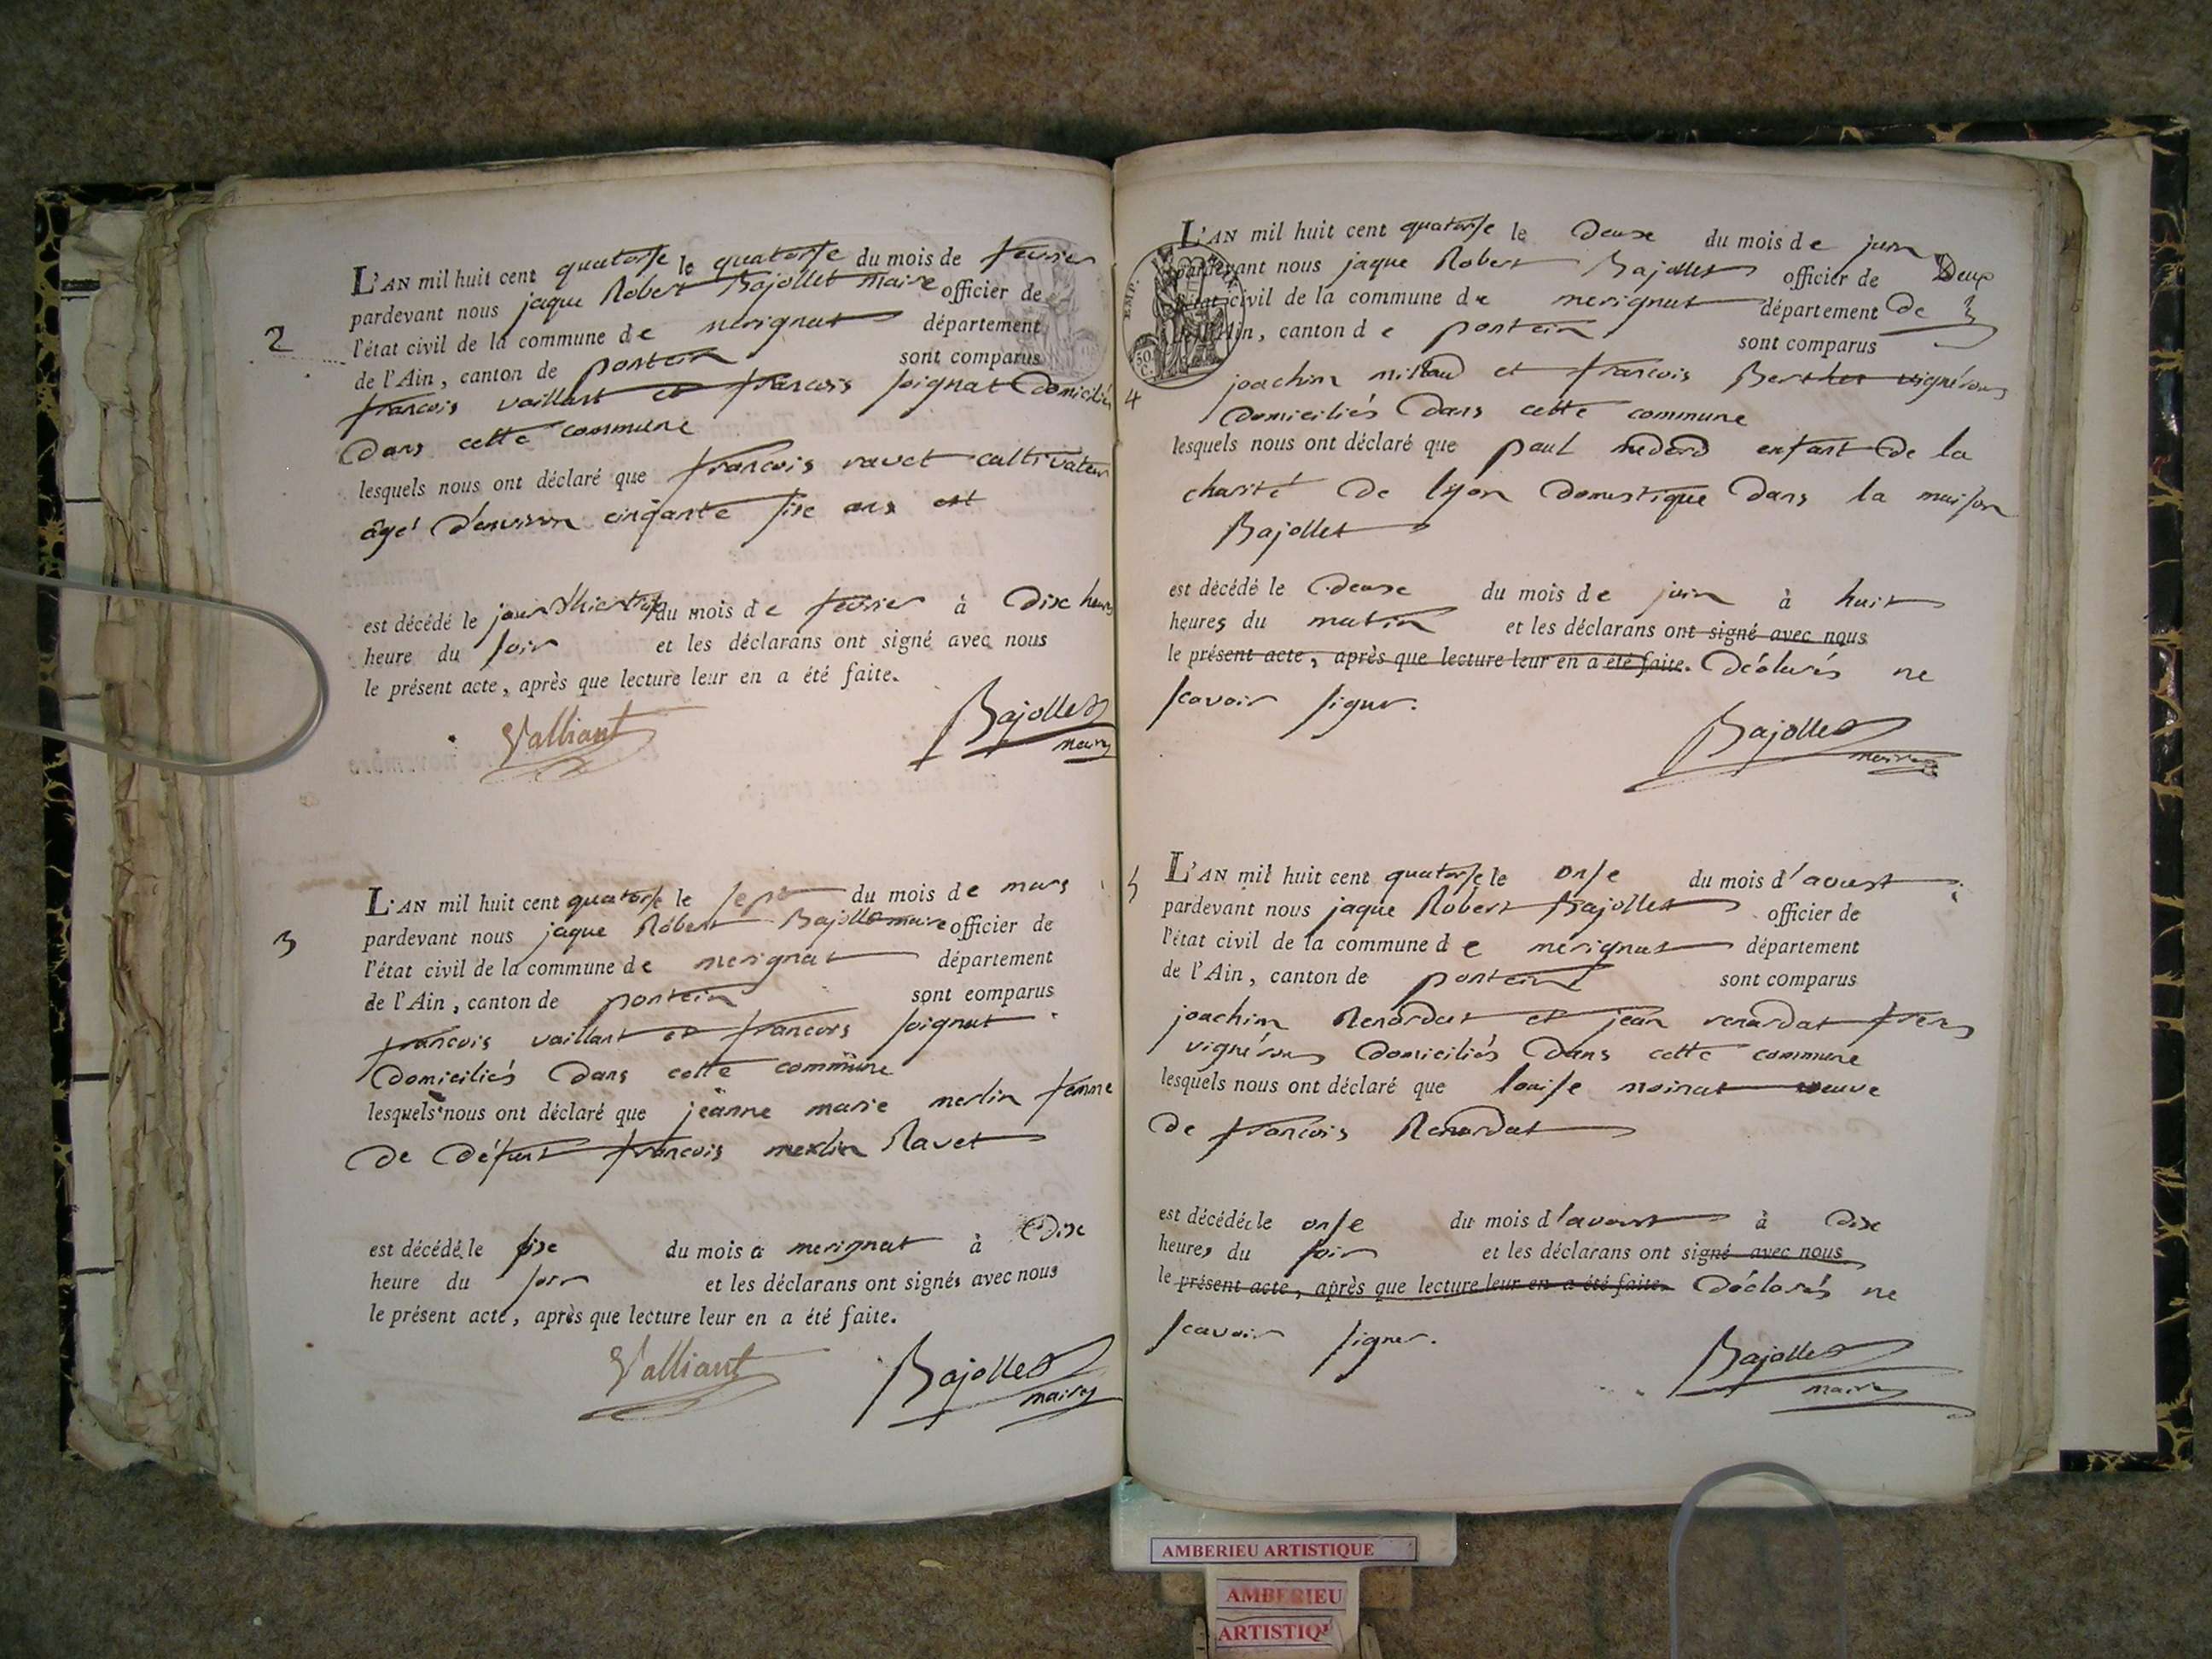 2
L'AN mil huit cent quatorse le quatorse du mois de fevrier
pardevant nous jaque Robert Bajollet maire officier de
l'état civil de la commune de merignat département
de l'Ain, canton de poncin sont comparus
francois vaillant et francois soignat domiciliés
dans cette commune
lesquels nous ont déclaré que francois ravet cultivateur
âgé d'environ cinqante sixe ans est
est décédé le jour d'hier du mois de fevrier à dixe heures
heure du soir et les déclarans ont signé avec nous
le présent acte, après que lecture leur en a été faite.
Valliant Bajollet
maire
3
L'AN mil huit cent quatorse le sept du mois de mars
pardevant nous jaque Robert Bajollet maire officier de
l'état civil de la commune de merignat département
de l'Ain, canton de poncin sont comparus
francois vaillant et francois soignat
domiciliés dans cette commune
lesquels nous ont déclaré que jeanne marie merlin femme
de défunt francois merlin Ravet
est décédé le sixe du mois a merignat à dixe
heure du soir et les déclarans ont signés avec nous
le présent acte, après que lecture leur en a été faite.
Valliant Bajollet
maire
EMP.
50
C.
L'AN mil huit cent quatorse le deuxe du mois de juin
pardevant nous jaque Robert Bajollet officier de Deux
l'état civil de la commune de merignat département de
de l'Ain, canton de poncin sont comparus
4
joachim millaud et francois Berthet vignérons
domiciliés dans cette commune
lesquels nous ont déclaré que paul medard enfant de la
charité de lyon domestique dans la maison
Bajollet
est décédé le deuxe du mois de juin à huit
heures du matin et les déclarans ont signé avec nous
le présent acte, après que lecture leur en a été faite. déclarés ne
scavoir signer.
Bajollet
maire
5
L'AN mil huit cent quatorse le onse du mois d'aoust
pardevant nous jaque Robert Bajollet officier de
l'état civil de la commune de merignat département
de l'Ain, canton de poncin sont comparus
joachim Renardat et jean renardat freres
vignérons domiciliés dans cette commune
lesquels nous ont déclaré que louise moinat veuve
de francois Renardat
est décédée le onse du mois d'aoust à dixe
heures du soir et les déclarans ont signé avec nous
le présent acte, après que lecture leur en a été faite. déclarés ne
scavoir signer.
Bajollet
maire
AMBERIEU ARTISTIQUE
AMBERIEU
ARTISTIQ